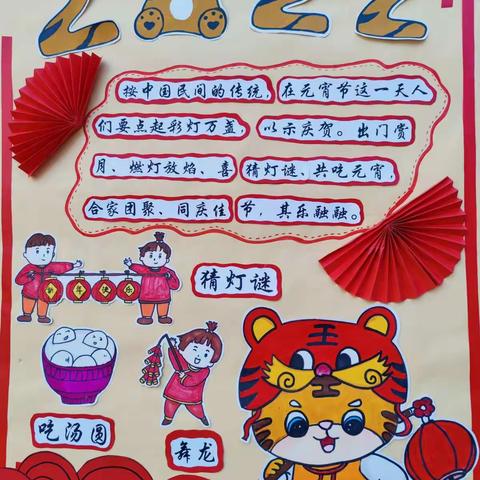 2022
按中国民间的传统,在元宵节这一天人
们要点起彩灯万盏,以示庆贺。出门赏
月、燃灯放焰、喜猜灯谜、共吃元宵,
合家团聚、同庆佳节,其乐融融。
猜灯谜
新年快乐
吃汤圆
舞龙
王